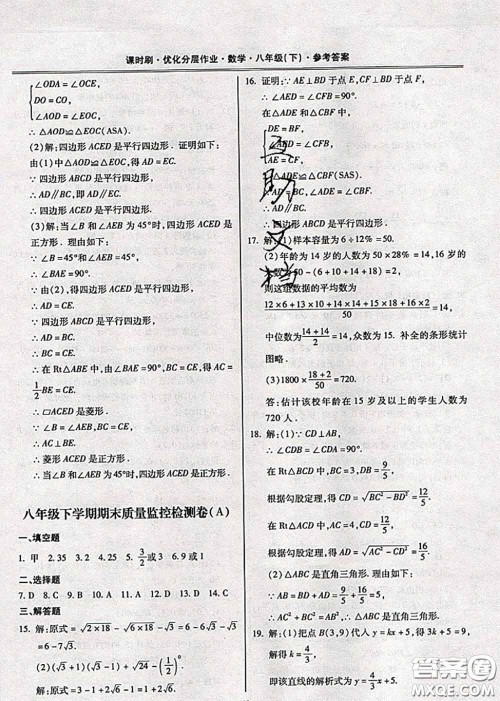 课时刷·优化分层作业·数学·八年级(下)·参考答案
∠ODA=∠OCE,
DO=CO,
∠AOD=∠EOC,
∴△AOD≌△EOC(ASA).
(2)解:四边形ACED是平行四边形.理由如下:
由(1)中△AOD≌△EOC,得AD=EC.
∵四边形ABCD是平行四边形,
∴AD∥BC,即AD∥EC.
∴四边形ACED是平行四边形.
(3)解:当∠B和∠AEB为45°时,四边形ACED是正
方形.理由如下:
∵∠B=45°和∠AEB=45°,
∴∠BAE=90°.
∵由(2),得四边形ACED是平行四边形,
∴AD=CE.
∵四边形ABCD是平行四边形,
∴AD=BC.
∴BC=CE.
∵在Rt△ABE中,由∠BAE=90°,BC=CE,得AC=
1/2 BE=CE.
∴▱ACED是菱形.
∵∠B=∠AEB,BC=CE,
∴AC⊥BE.
∴四边形ACED是正方形.
∴当∠B和∠AEB为45°时,四边形ACED是正方形.
八年级下学期期末质量监控检测卷(A)
一、填空题
1. 甲 2. 35 3. 2 4. 52 5. 3/2或3 6. 9或1
二、选择题
7. D 8. C 9. D 10. D 11. C 12. D 13. A 14. C
三、解答题
15. 解:原式=√2×18-√6×1/2-√3=6-√3-√3=6-2√3.
(2)(√3+1)(√3-1)+√24-(1/2)⁰
解:原式=3-1+2√6-1=1+2√6.
16. 证明:∵AE⊥BD于点E,CF⊥BD于点F,
∴∠AED=∠CFB=90°.
在△ADE和△CBF中,
DE=BF,
∠AED=∠CFB,
AE=CF,
∴△ADE≌△CBF(SAS).
∴AD=BC,∠ADE=∠CBF.
∴AD∥BC.
∴四边形ABCD是平行四边形.
17. 解:(1)样本容量为6÷12%=50.
(2)年龄为14岁的人数为50×28%=14,16岁的
人数为50-(6+10+14+18)=2,
则这组数据的平均数为
12×6+13×10+14×14+15×18+16×2/50=14,
中位数为14+14/2=14,众数为15. 补全的条形统计
图略.
(3)1800×18+2/50=720.
答:估计该校年龄在15岁及以上的学生人数为
720人.
18. 解:(1)∵CD⊥AB,
∴∠CDB=∠CDA=90°.
在Rt△BCD中,BC=4,DB=16/5,
根据勾股定理,得CD=√BC²-DB²=12/5.
(2)在Rt△ACD中,AC=3,CD=12/5,
根据勾股定理,得AD=√AC²-CD²=9/5.
(3)△ABC是直角三角形.理由如下:
∵AB=BD+AD=16/5+9/5=5,
∴AC²+BC²=AB².
∴△ABC是直角三角形.
19. 解:(1)把点B(3,9)代入y=kx+5,得3k+5=9,
解得k=4/3.
即该直线的解析式为y=4/3x+5.
互助文档
答案圈
MXQE.COM